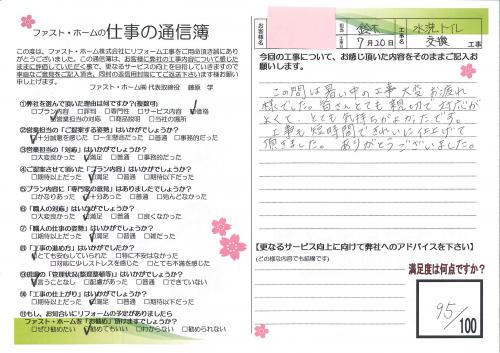 ファスト・ホームの仕事の通信簿
この度は、ファスト・ホーム株式会社にリフォーム工事をご用命頂き誠にあり
がとうございました。この通信簿は、お客様に弊社の工事内容について感じた
ままに評価していただく事で、更なるサービスの向上を目指していきますので
率直なご意見をご記入頂き、同封の返信用封筒にてご返送下さいます様お願い
申し上げます。
ファスト・ホーム㈱ 代表取締役 藤原 学
①弊社を選んで頂いた理由は何ですか?(複数可)
□プラン内容 □評判 □サービス内容 □価格
□営業担当の対応 □商品説明 □当社の場所
②営業担当の「ご提案する姿勢」はいかがでしょうか?
□十分誠意を感じた □一生懸命だった □普通 □事務的だった
③営業担当の「対応」はいかがでしょうか?
□大変良かった □満足 □普通 □事務的だった
④ご提案させて頂いた「プラン内容」はいかがでしょうか?
□期待以上だった □満足 □普通 □期待以下だった
⑤プラン内容に「専門家の意見」はありましたか?
□かなりあった □十分あった □普通 □殆んどなかった
⑥「職人の対応」はいかがでしょうか?
□大変良かった □満足 □普通 □良くなかった
⑦「職人の仕事の姿勢」はいかがでしょうか?
□期待以上だった □満足 □普通 □雑だった
⑧「工事の進め方」はいかがでしたか?
□とても安心していられた □特に不安はなかった
□対応に少しストレスを感じた □とても不満を感じた
⑨現場の「管理状況(整理整頓等)」はいかがでしょうか?
□言うことなし □配慮があった □普通 □できていない
⑩「工事の仕上がり」はいかがでしょうか?
□期待以上だった □満足 □普通 □期待以下だった
⑪もし、お知り合いにリフォームの予定がありましたら
ファスト・ホームを「お勧め」頂けますでしょうか?
□ぜひ勧めたい □勧めてもいい □わからない □勧められない
お客様名
担当 鈴木
7月20日
工事名 水洗トイレ
交換 工事
今回の工事について、お感じ頂いた内容をそのままご記入お
願いします。
この間は暑い中の工事 大変お疲れ
様でした。皆さんとても親切で対応が
よくて、とても気持ちがよかったです。
工事も短時間できれいに仕上げて
頂きました。ありがとうございました。
【更なるサービス向上に向けて弊社へのアドバイスを下さい】
(どの様な内容でも結構です)
満足度は何点ですか?
95/100